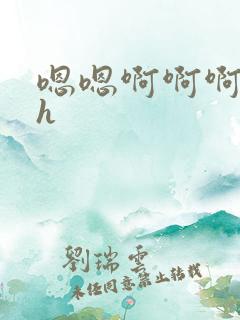 嗯嗯啊啊啊
h
劉瑞雲
未经同意禁止转载